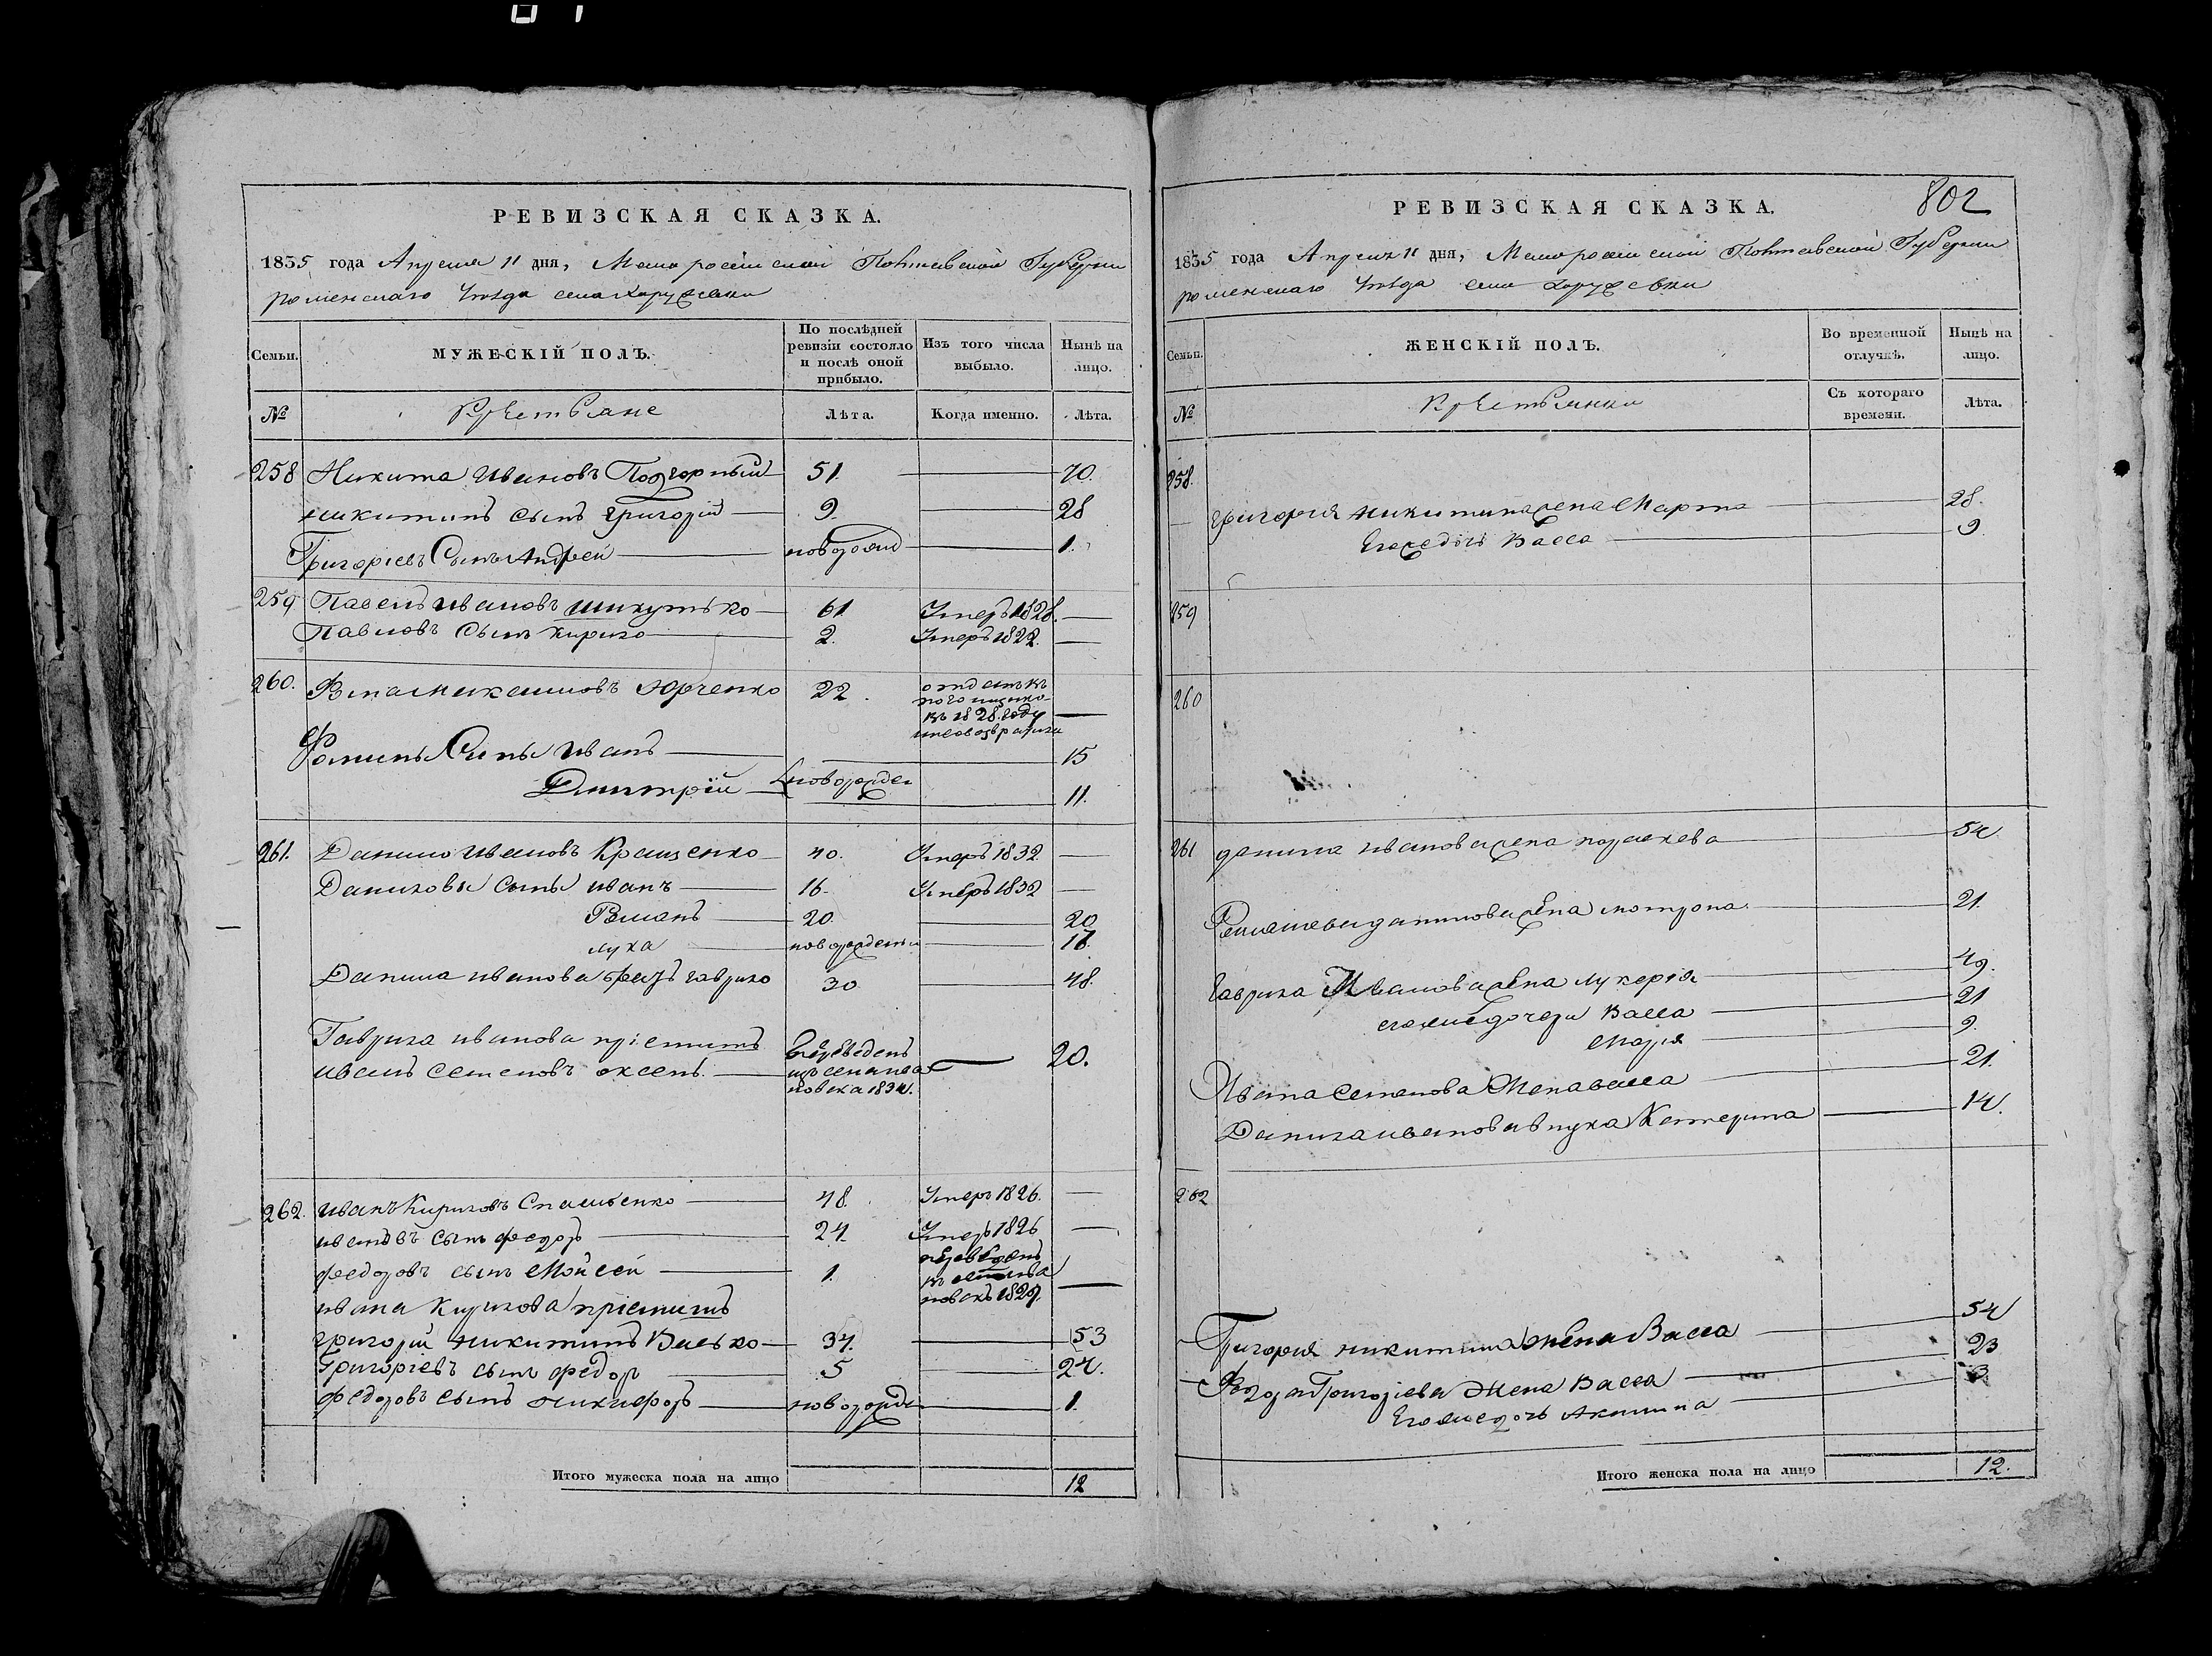 РЕВИЗСКАЯ СКАЗКА.
1835 года Апреля 11 дня, Малороссийской Полтавской Губернии
роменскаго уѣзда села Хоружевки
Семьи.
МУЖЕСКІЙ ПОЛЪ.
По послѣдней ревизіи состояло и послѣ оной прибыло.
Изъ того числа выбыло.
Нынѣ на лицо.
№
Крестьяне
Лѣта.
Когда именно.
Лѣта.
258 Никита Ивановъ Подгорный 51. 70.
никитинъ сынъ григорій 9. 28
Григоріевъ Сынъ Андрей новорожд 1.
259 Павелъ Ивановъ шикутько 61 Умеръ 1828.
Павловъ Сынъ кирило 2. Умеръ 1822.
260. Фома Максимовъ Юрченко 22.
отданъ въ
въ 1828. году
Фомины Сыны Иванъ 15
Дмитрій новорожден 11.
261. Данило Ивановъ Кращенко 40. Умеръ 1832
Даниловы сыны иванъ 16. Умеръ 1832
Романъ 20. 20
лука новорожденъ 17.
Данила иванова братъ гаврило 30 48.
Гаврила иванова пріемышъ
иванъ семеновъ аксенъ 20.
переведенъ
1834.
262. иванъ Кириловъ Спасибенко 48. Умеръ 1826.
ивановъ сынъ федоръ 24. Умеръ 1826
федоровъ сынъ Мойсей 1.
переведенъ
1829.
ивана Кирилова пріемышъ
григорій никитинъ Васько 34. 53
Григоріевъ сынъ федоръ 5 24.
федоровъ сынъ никифоръ новорожде 1.
Итого мужеска пола на лицо 12
802
РЕВИЗСКАЯ СКАЗКА.
1835 года Апреля 11 дня, Малороссийской Полтавской Губернии
роменскаго уѣзда села Хоружевки
Семьи.
ЖЕНСКІЙ ПОЛЪ.
Во временной отлучкѣ.
Нынѣ на лицо.
№
Крестьянки
Съ котораго времени.
Лѣта.
258.
григорія никитина жена Марта 28.
Его же дочь Васса 9.
259
260
261 данила иванова жена 54
данилова жена мотрона 21.
Гаврила Иванова жена лукерія 49.
его же дочери Васса 21
Марія 9.
Ивана Семенова Жена васса 21.
Данила иванова внука Катерина 14.
262
Григорія никитина жена Васса 54
Федора Григоріева Жена Васса 23
Его же дочь Акилина 3
Итого женска пола на лицо 12.